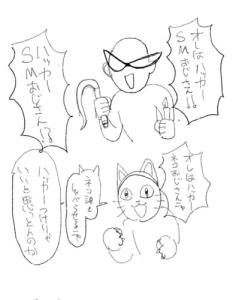 オレはハッカー
SMおじさん!!
ハッカー
SMおじさん!?
オレはハッカー
ネコおじさんニャ
ネコ語を
しゃべらせるニャ
ハッカーつけりゃ
いいと思っとんのか